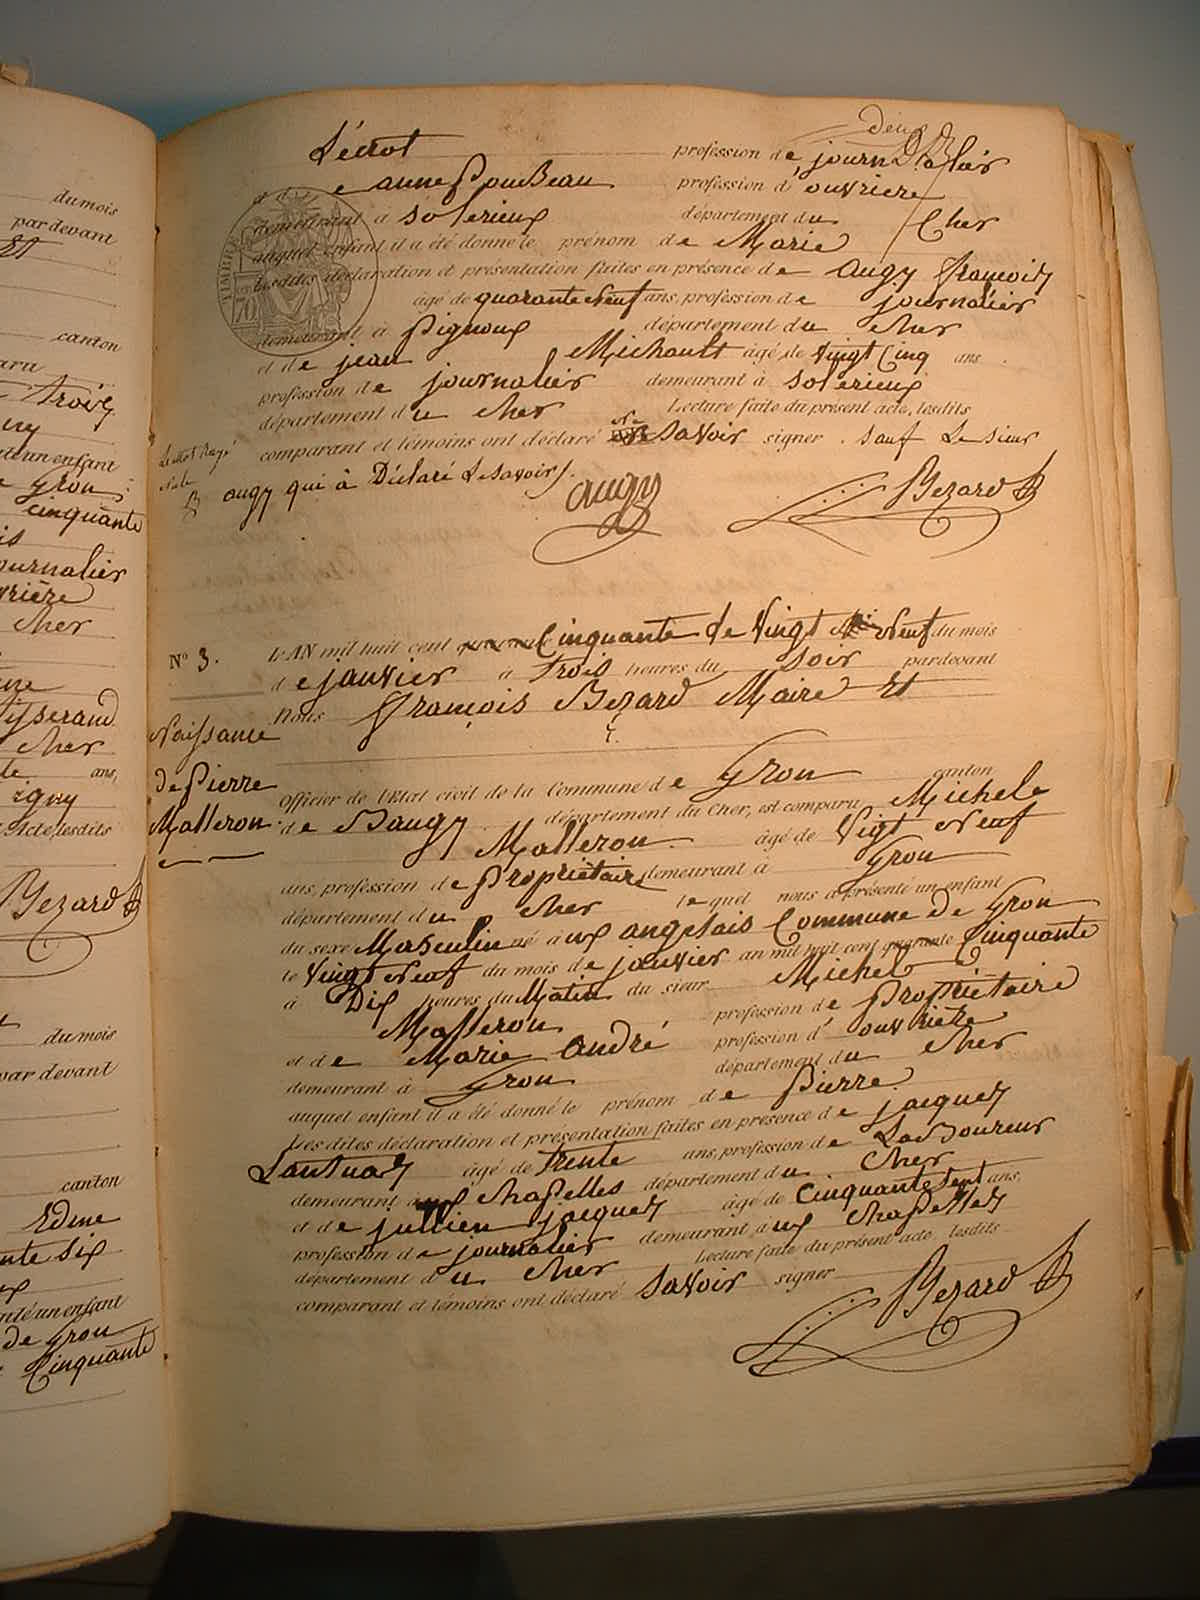 deux
Lécrot profession de journalier
et de anne PouBeau profession d'ouvriere
demeurant à Solérieux département du Cher
auquel enfant il a été donné le prénom de Marie
Lesdites déclaration et présentation faites en présence de Augy françois
âgé de quarante Neuf ans, profession de journalier
demeurant à Pignoux département du Cher
et de jean Michault âgé de Vingt Cinq ans
profession de journalier demeurant à Solérieux
département du Cher Lecture faite du présent acte, lesdits
comparant et témoins ont déclaré Ne savoir signer . sauf Le sieur
Le Mot Rayé
Nule
B augy qui à Déclaré Le savoir /.
augy Bezard B
N° 3. L'AN mil huit cent Cinquante de Vingt Neuf du mois
de janvier à Trois heures du soir pardevant
Nous françois Bezard Maire Et
Naissance
de Pierre
Malleron
Officier de l'Etat civil de la Commune de Gron canton
de Baugy département du Cher, est comparu Michel
Malleron âgé de Vigt Neuf
ans, profession de Propriétaire demeurant à Gron
département du Cher lequel nous a présenté un enfant
du sexe Masculin né à ux anglais Commune de Gron
le Vingt Neuf du mois de janvier an mil huit cent quarante Cinquante
à Dix heures du Matin du sieur Michel
Malleron profession de Propriétaire
et de Marie André profession d'ouvriere
demeurant à Gron département du Cher
auquel enfant il a été donné le prénom de Pierre
Les dites déclaration et présentation faites en présence de jacques
Lautuas âgé de Trente ans, profession de LaBoureur
demeurant aux Chapelles département du Cher
et de jullien jacques âgé de Cinquante sept ans,
profession de journalier demeurant aux Chapelles
département du Cher Lecture faite du présent acte lesdits
comparant et témoins ont déclaré savoir signer
Bezard B
du mois
par devant
Et
canton
Trois
Gron
cinquante
journalier
Cher
Tysserand
Cher
ans,
Bezard B
du mois
par devant
canton
Edme
de Gron
Cinquante